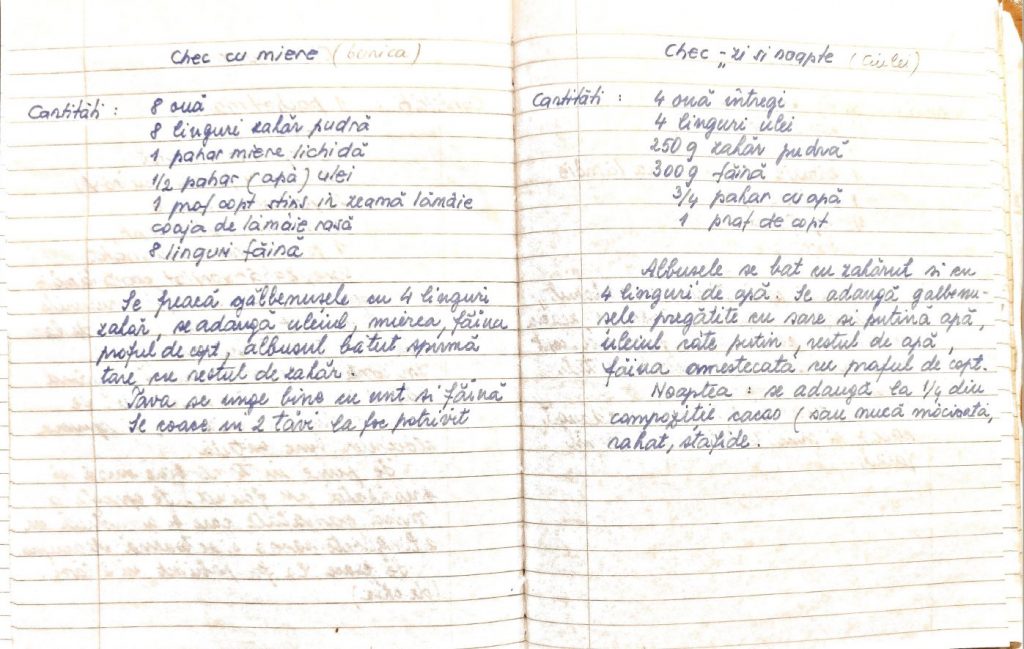 Chec cu miere (bunica)
Cantităti : 8 ouă
8 linguri zahăr pudră
1 pahar miere lichidă
1/2 pahar (apă) ulei
1 praf copt stins in zeamă lămâie
coaja de lămâie rasă
8 linguri făină
Se freacă gălbenusele cu 4 linguri
zahăr, se adaugă uleiul, mierea, făina
praful de copt, albusul batut spumă
tare cu restul de zahăr.
Tava se unge bine cu unt si făină
Se coace in 2 tăvi la foc potrivit
Chec „zi si noapte (ulei)
Cantităti : 4 ouă întregi
4 linguri ulei
250 g zahăr pudră
300 g făină
3/4 pahar cu apă
1 praf de copt
Albusele se bat cu zahărul si cu
4 linguri de apă. Se adaugă galbenu-
sele pregătite cu sare si putină apă,
uleiul câte putin, restul de apă,
făina amestecata cu praful de copt.
Noaptea : se adaugă la 1/4 din
compozitie cacao (sau nucă măcinată,
rahat, stafide.